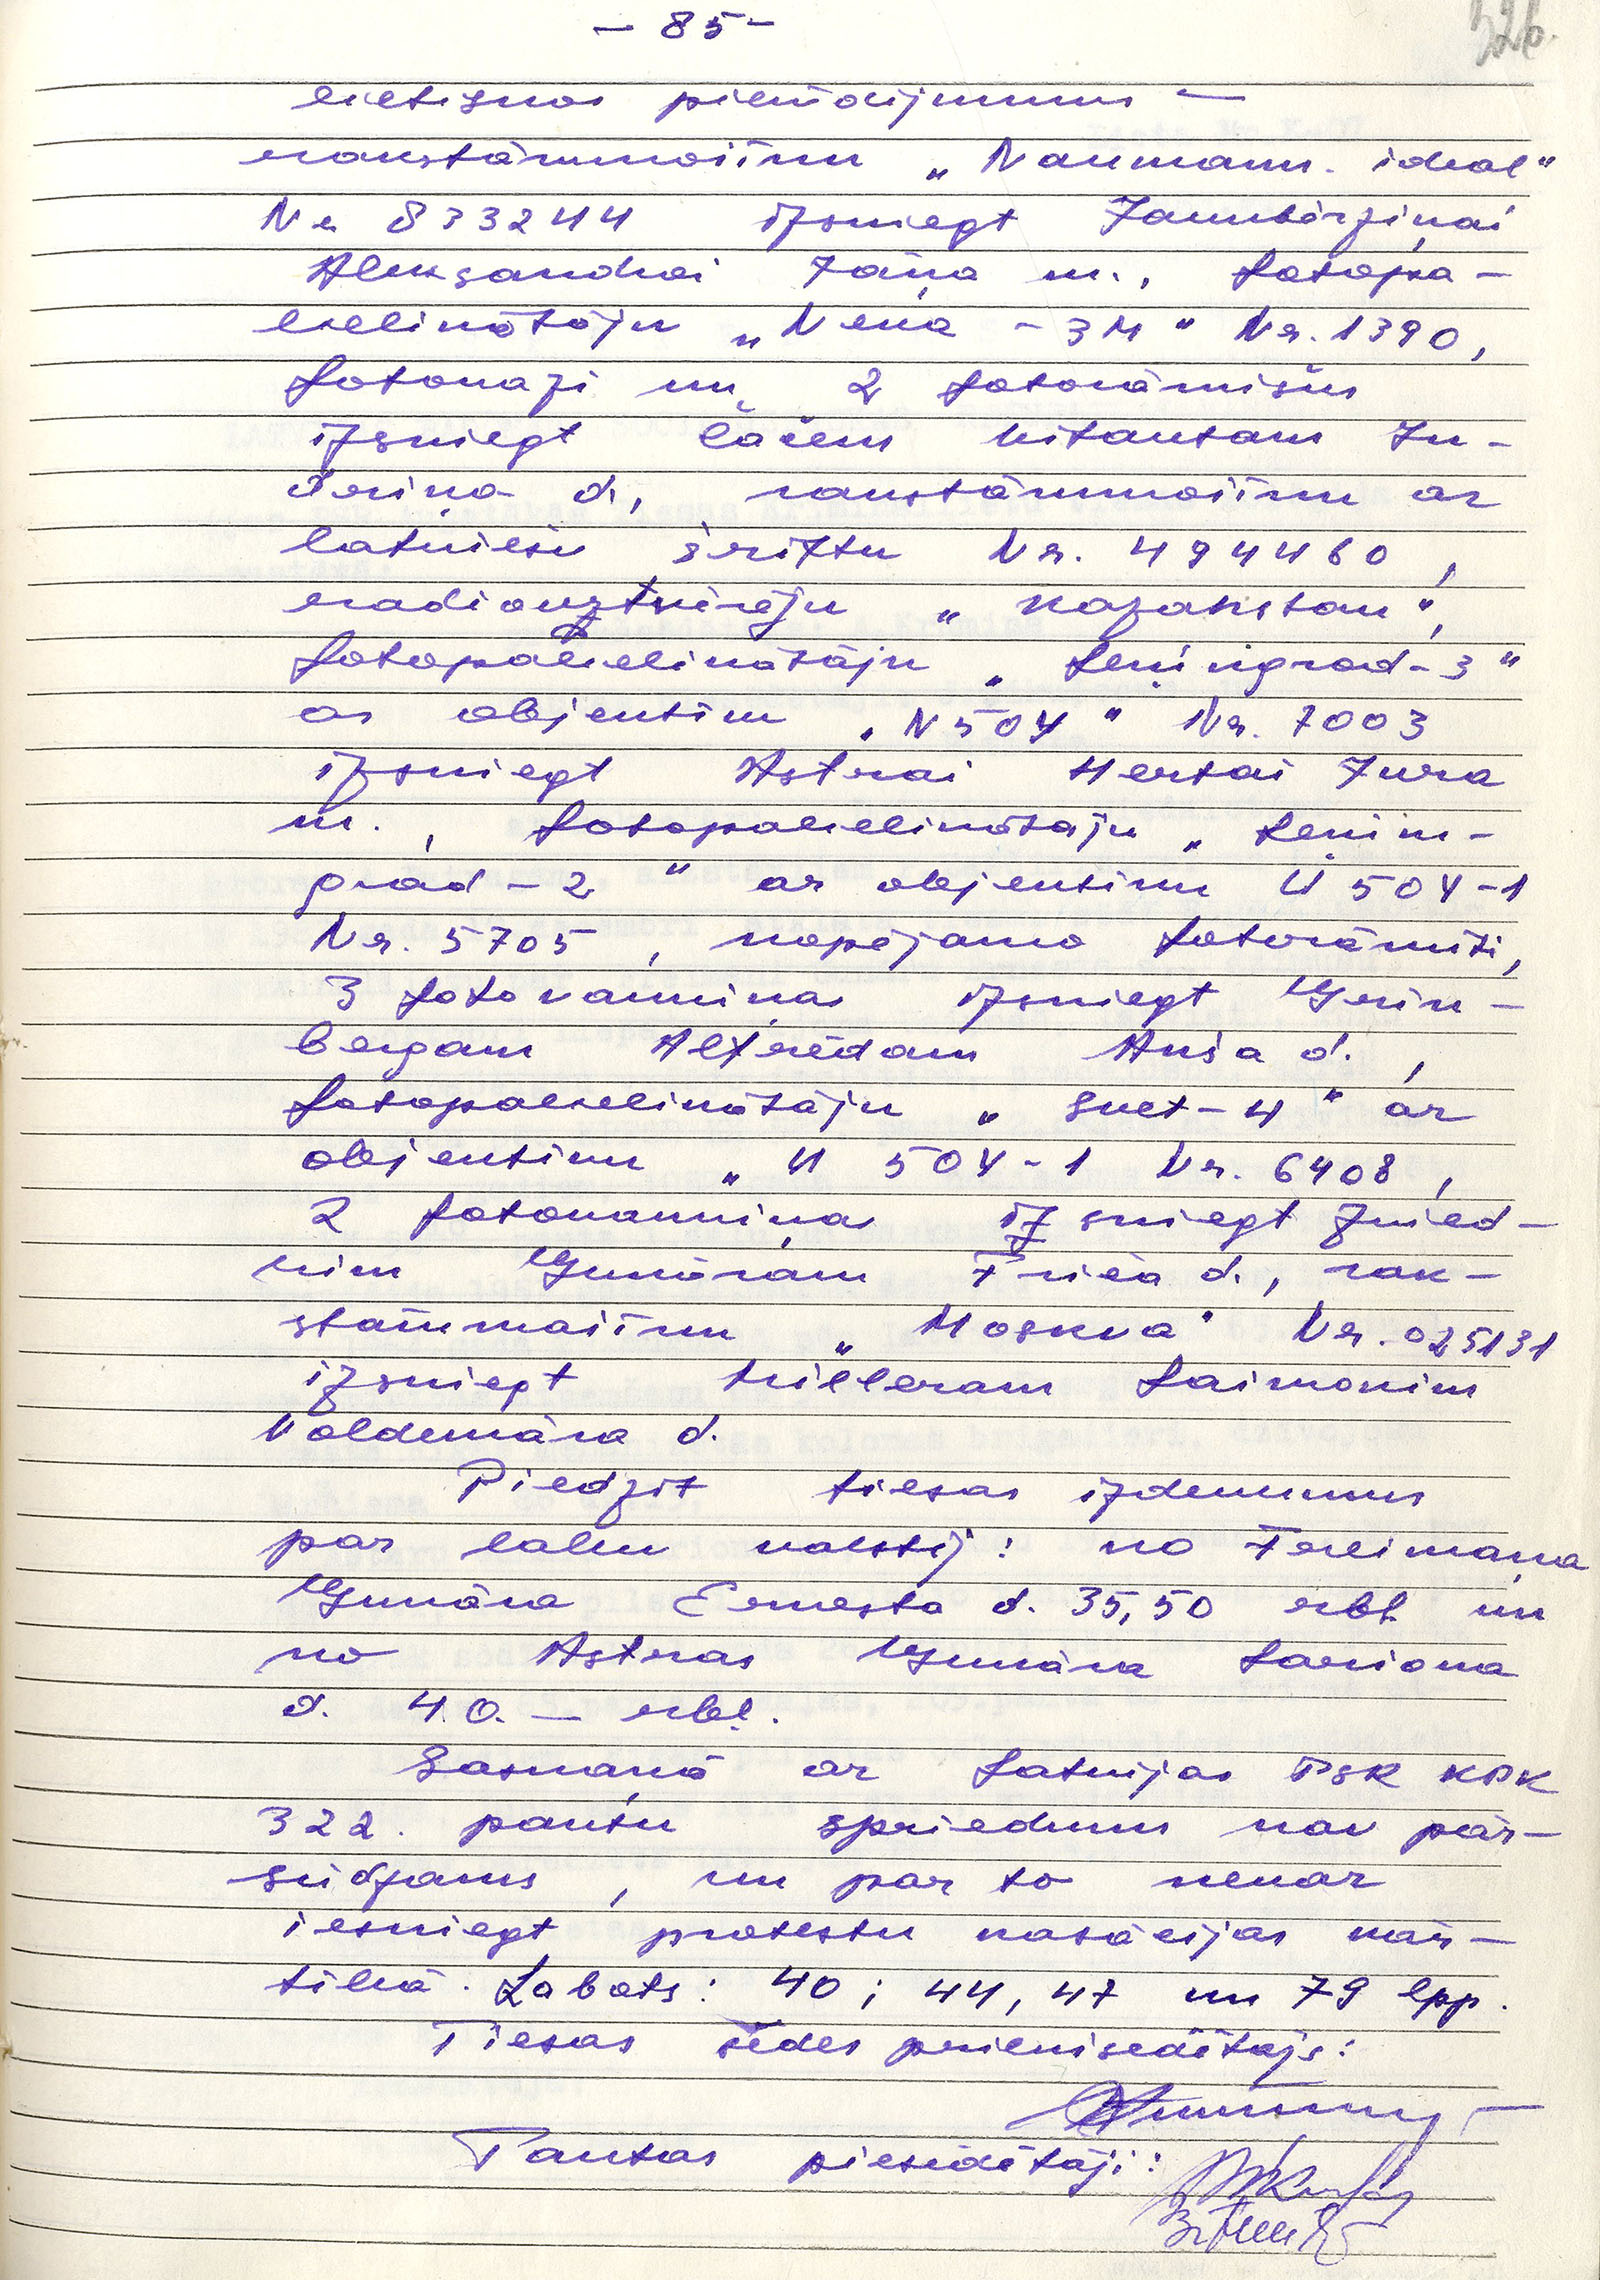 - 85 -
326.
lietiskos pierādījumus —
rakstāmmašīnu „Naumann. ideal"
Nr 833244 izsniegt Jaunbērziņai
Aleksandrai Jāņa m., fotopa-
lielinātāju „Neva - 3M" Nr. 1390,
fotonazi un 2 fotorāmīšus
izsniegt Lācim Vitautam In-
driķa d., rakstāmmašīnu ar
latviešu šriftu Nr. 494460,
radiouztvērēju „Kazahstan",
fotopalielinātāju „Ļeņingrad-3"
ar objektīvu „N504" Nr. 7003
izsniegt Astrai Hertai Jura
m., fotopalielinātaju „Ļeņin-
grad-2" ar objektīvu U 504-1
Nr. 5705, kopējamo fotorāmīti,
3 fotovanniņas izsniegt Grin-
bergam Alfrēdam Anša d.,
fotopalielinātāju „Svet-4" ar
objektīvu „U 504-1 Nr. 6408,
2 fotovanniņas izsniegt Zvied-
rim Gunāram Friča d., rak-
stāmmašīnu „Moskva" Nr. 025131
izsniegt Milleram Laimonim
Voldemāra d.
Piedzīt tiesas izdevumus
par labu valstij: no Freimaņa
Gunāra Ernesta d. 35,50 rbl un
no Astras Gunāra Lariona
d. 40. — rbl.
Saskaņā ar Latvijas PSR KPK
322. pantu spriedums nav pār-
sūdzams, un par to nevar
iesniegt protestu kasācijas kār-
tībā. Labots: 40; 44, 47 un 79 lpp.
Tiesas sēdes priekšsēdētājs:
Tautas piesēdētāji: